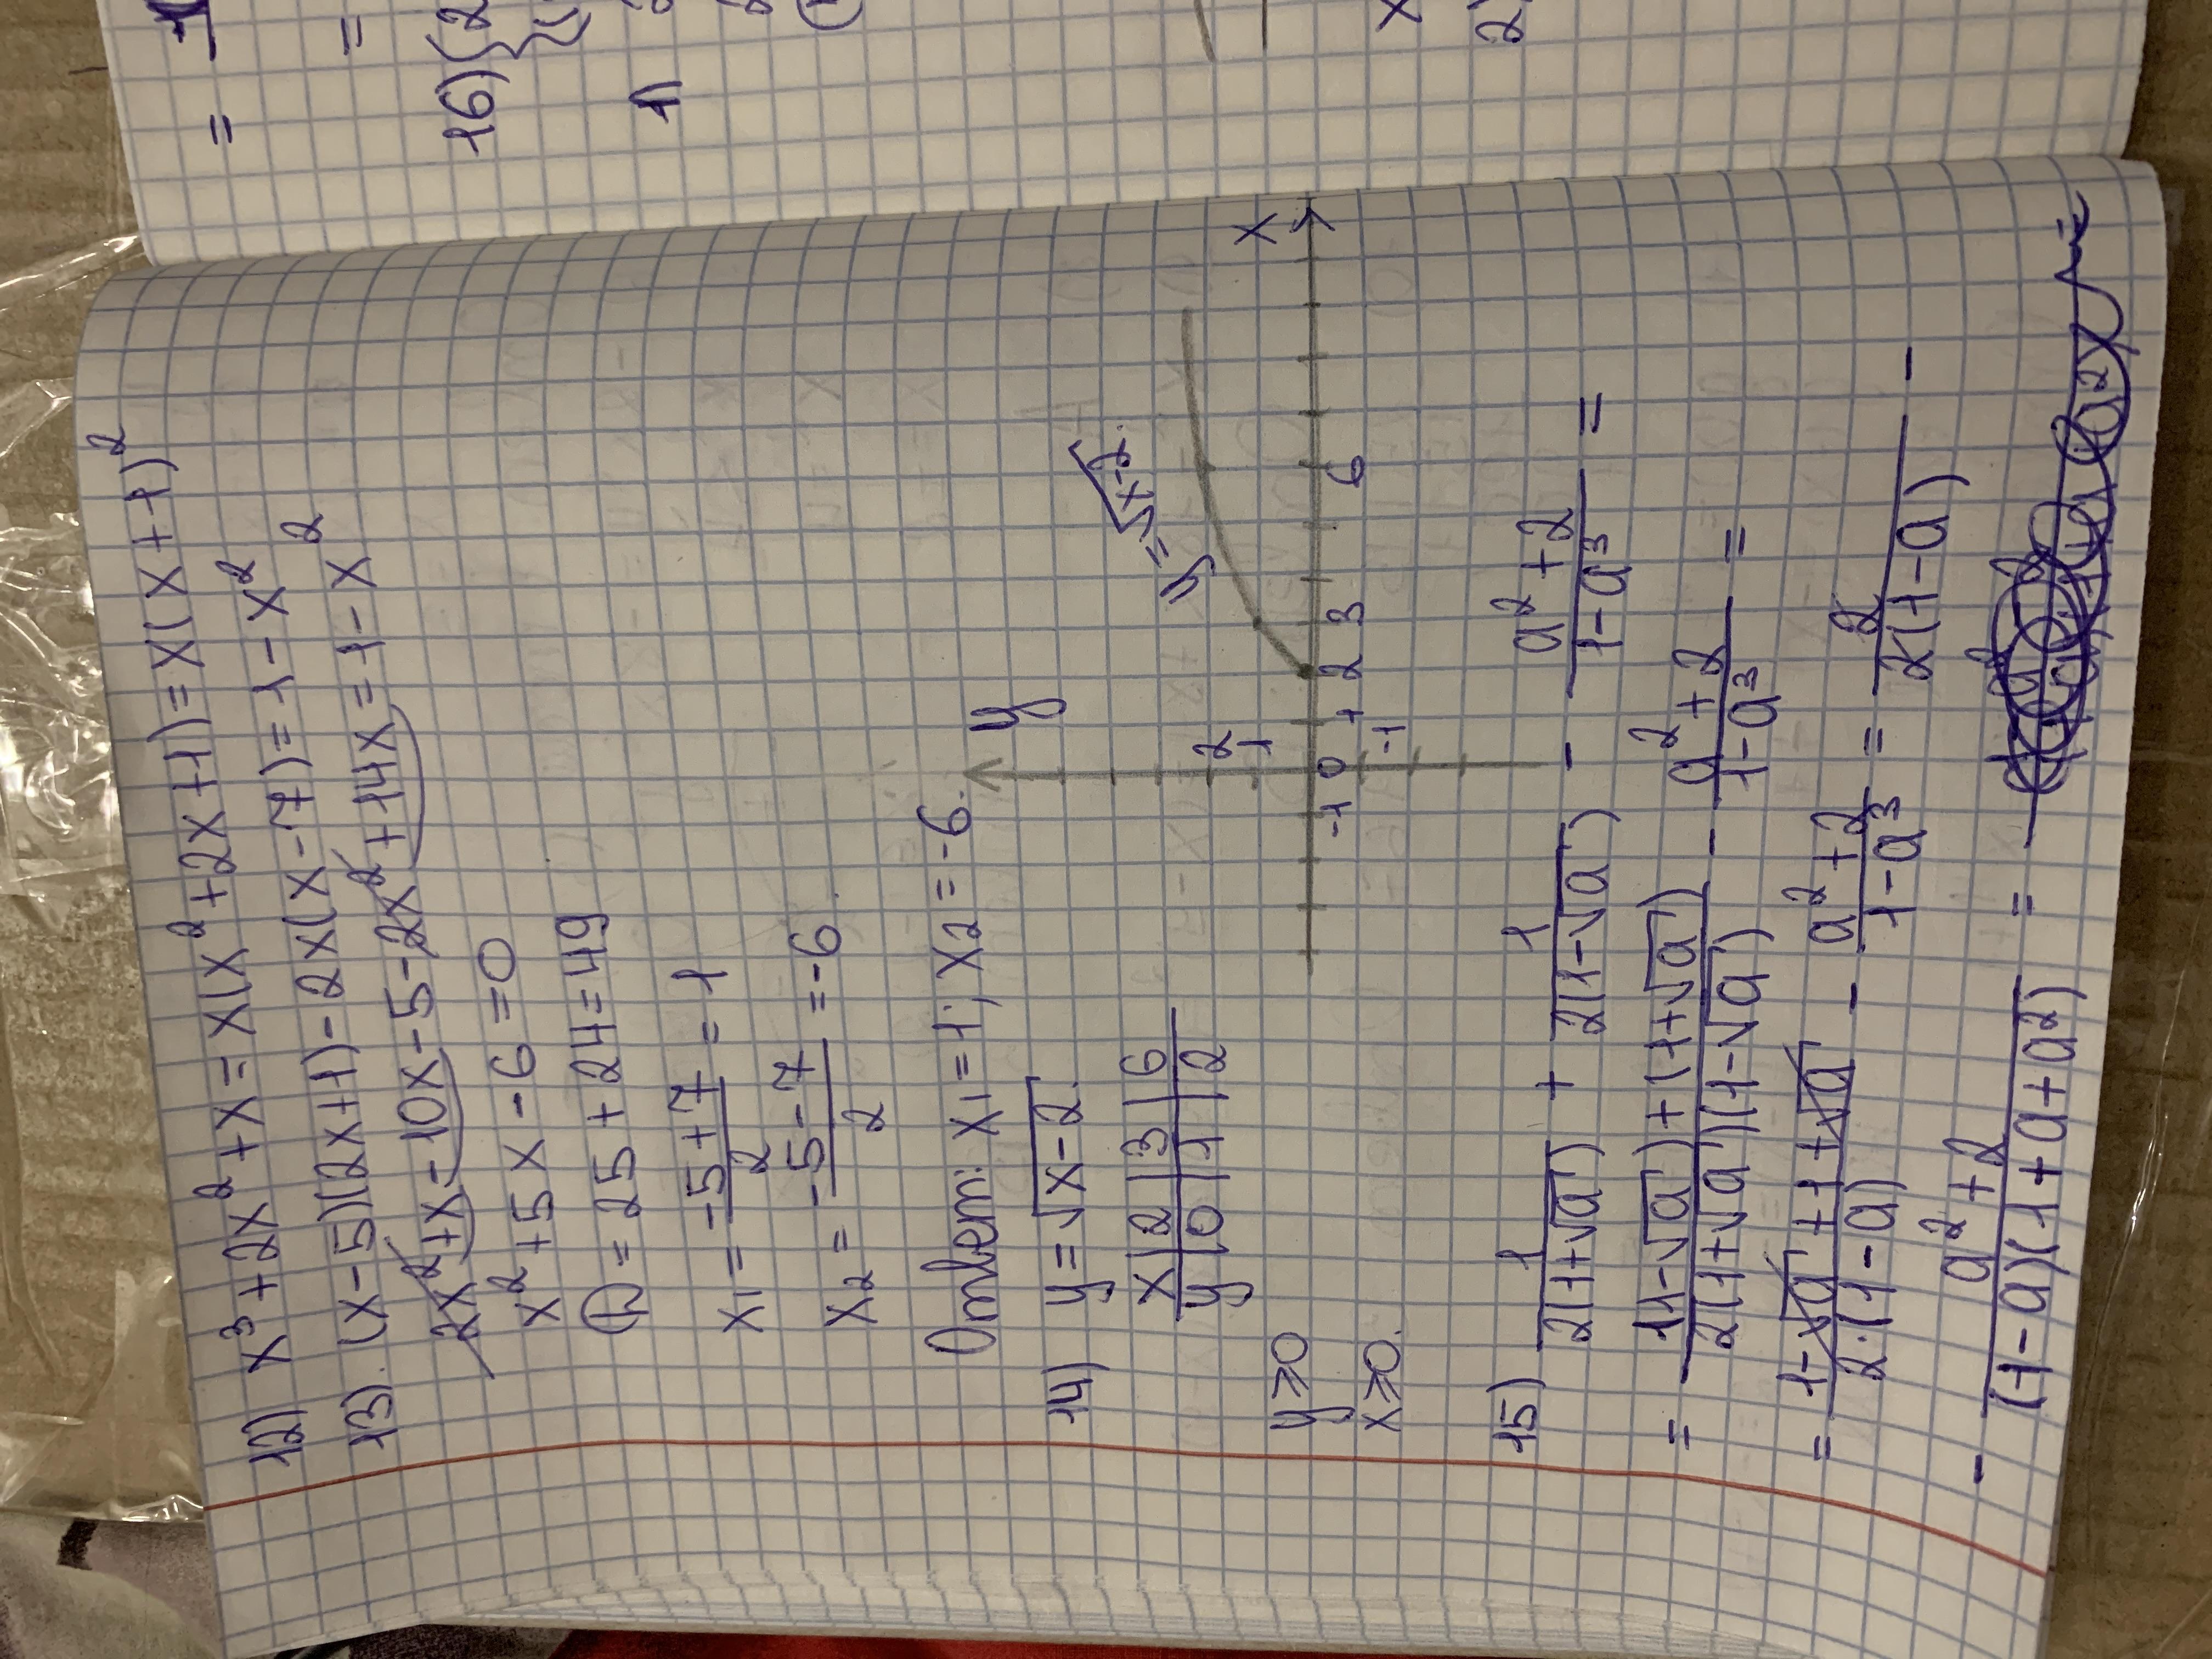 12) x³+2x²+x=x(x²+2x+1)=x(x+1)²
13). (x-5)(2x+1)-2x(x-7)=1-x²
2x²+x-10x-5-2x²+14x=1-x²
x²+5x-6=0
D=25+24=49
x₁=(-5+7)/2=1
x₂=(-5-7)/2=-6.
Ответ: x₁=1; x₂=-6.
14) y=√(x-2)
x|2|3|6
y|0|1|2
y
x
y=√(x-2)
2
1
-1 0 1 2 3 6
-1
y⩾0
x⩾0.
15) 1/(2(1+√a)) + 1/(2(1-√a)) - (a²+2)/(1-a³) =
= (1(1-√a)+1(1+√a))/(2(1+√a)(1-√a)) - (a²+2)/(1-a³) =
= (1-√a+1+√a)/(2·(1-a)) - (a²+2)/(1-a³) = 2/(2(1-a)) -
- (a²+2)/((1-a)(1+a+a²)) =
=
=
16) (2
1)
x
2)